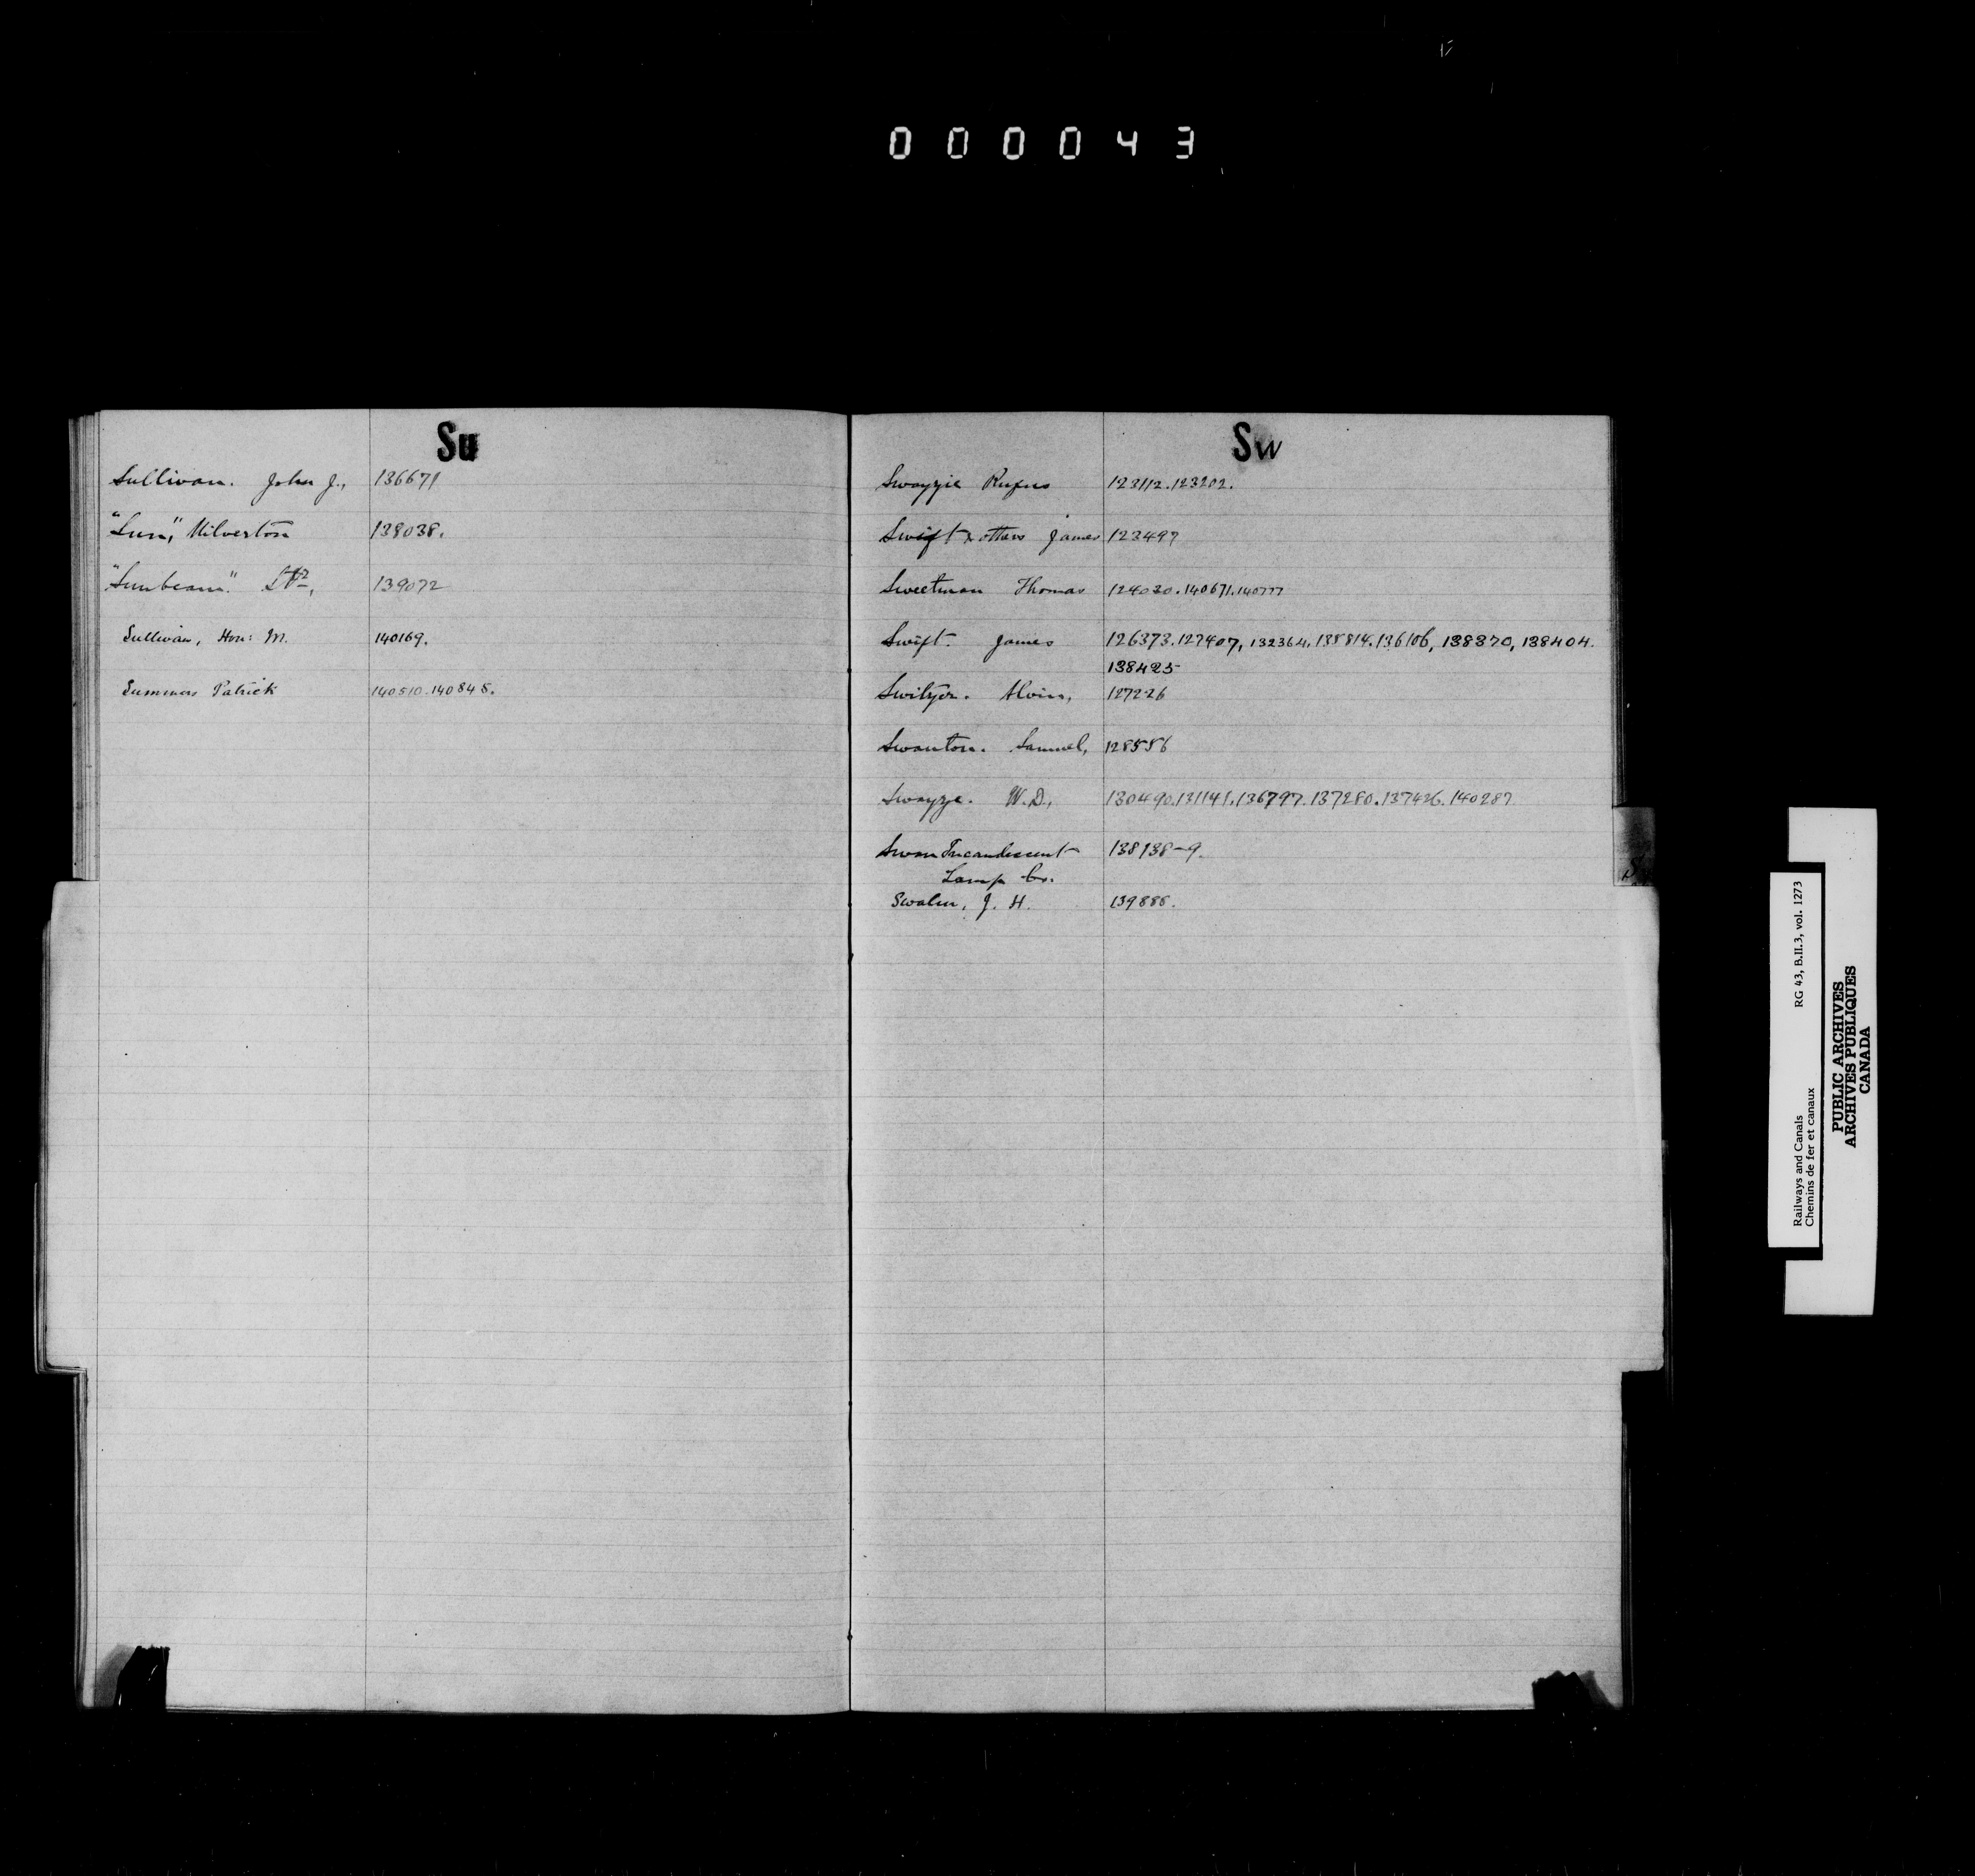 000043
Su
Sullivan. John J., 136671
"Sun," Milverton 138038.
"Sunbeam." Str, 139072
Sullivan, Hon: M. 140169.
Summers Patrick 140510.140845.
Sw
Swayzie Rufus 123112.123202.
Swift & others James 123497
Sweetman Thomas 124030.140671.140777
Swift. James 126373.127407, 132364, 135814.136106, 138370, 138404.
138425
Switzer. Alvin, 127226
Swanton. Samuel, 128556
Swayze. W.D., 130490.131141.136797.137280.137426.140287
Swan Incandescent 138138-9.
Lamp Co.
Swalm, J. H. 139888.
Railways and Canals RG 43, B.II.3, vol. 1273
Chemins de fer et canaux
PUBLIC ARCHIVES
ARCHIVES PUBLIQUES
CANADA